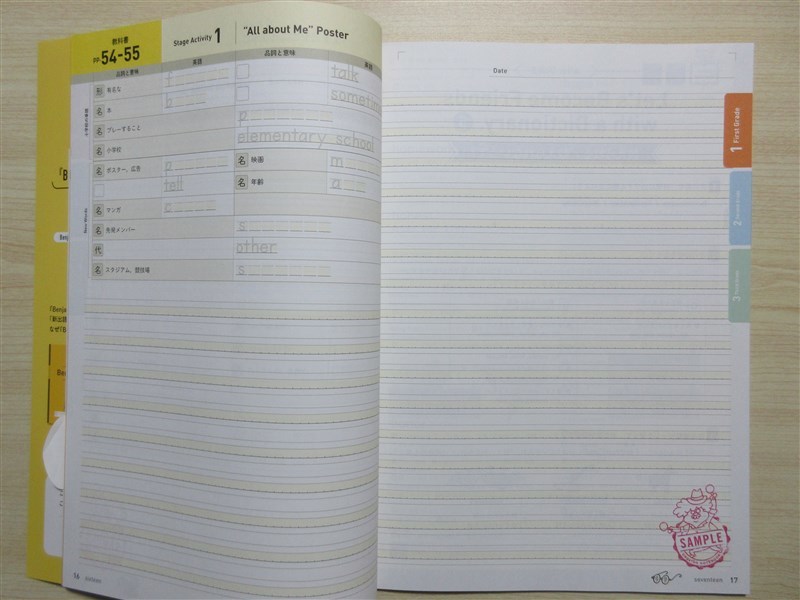 教科書
pp. 54-55
Stage Activity 1
"All about Me" Poster
品詞と意味 英語 品詞と意味 英語
形 有名な f
talk
名 本 b
sometim
名 プレーすること p
名 小学校 elementary school
名 ポスター，広告 p
名 映画 m
tell
名 年齢 a
名 マンガ c
名 先発メンバー s
代 other
名 スタジアム，競技場 s
Date
1 First Grade
2
3
SAMPLE
16 sixteen
seventeen 17